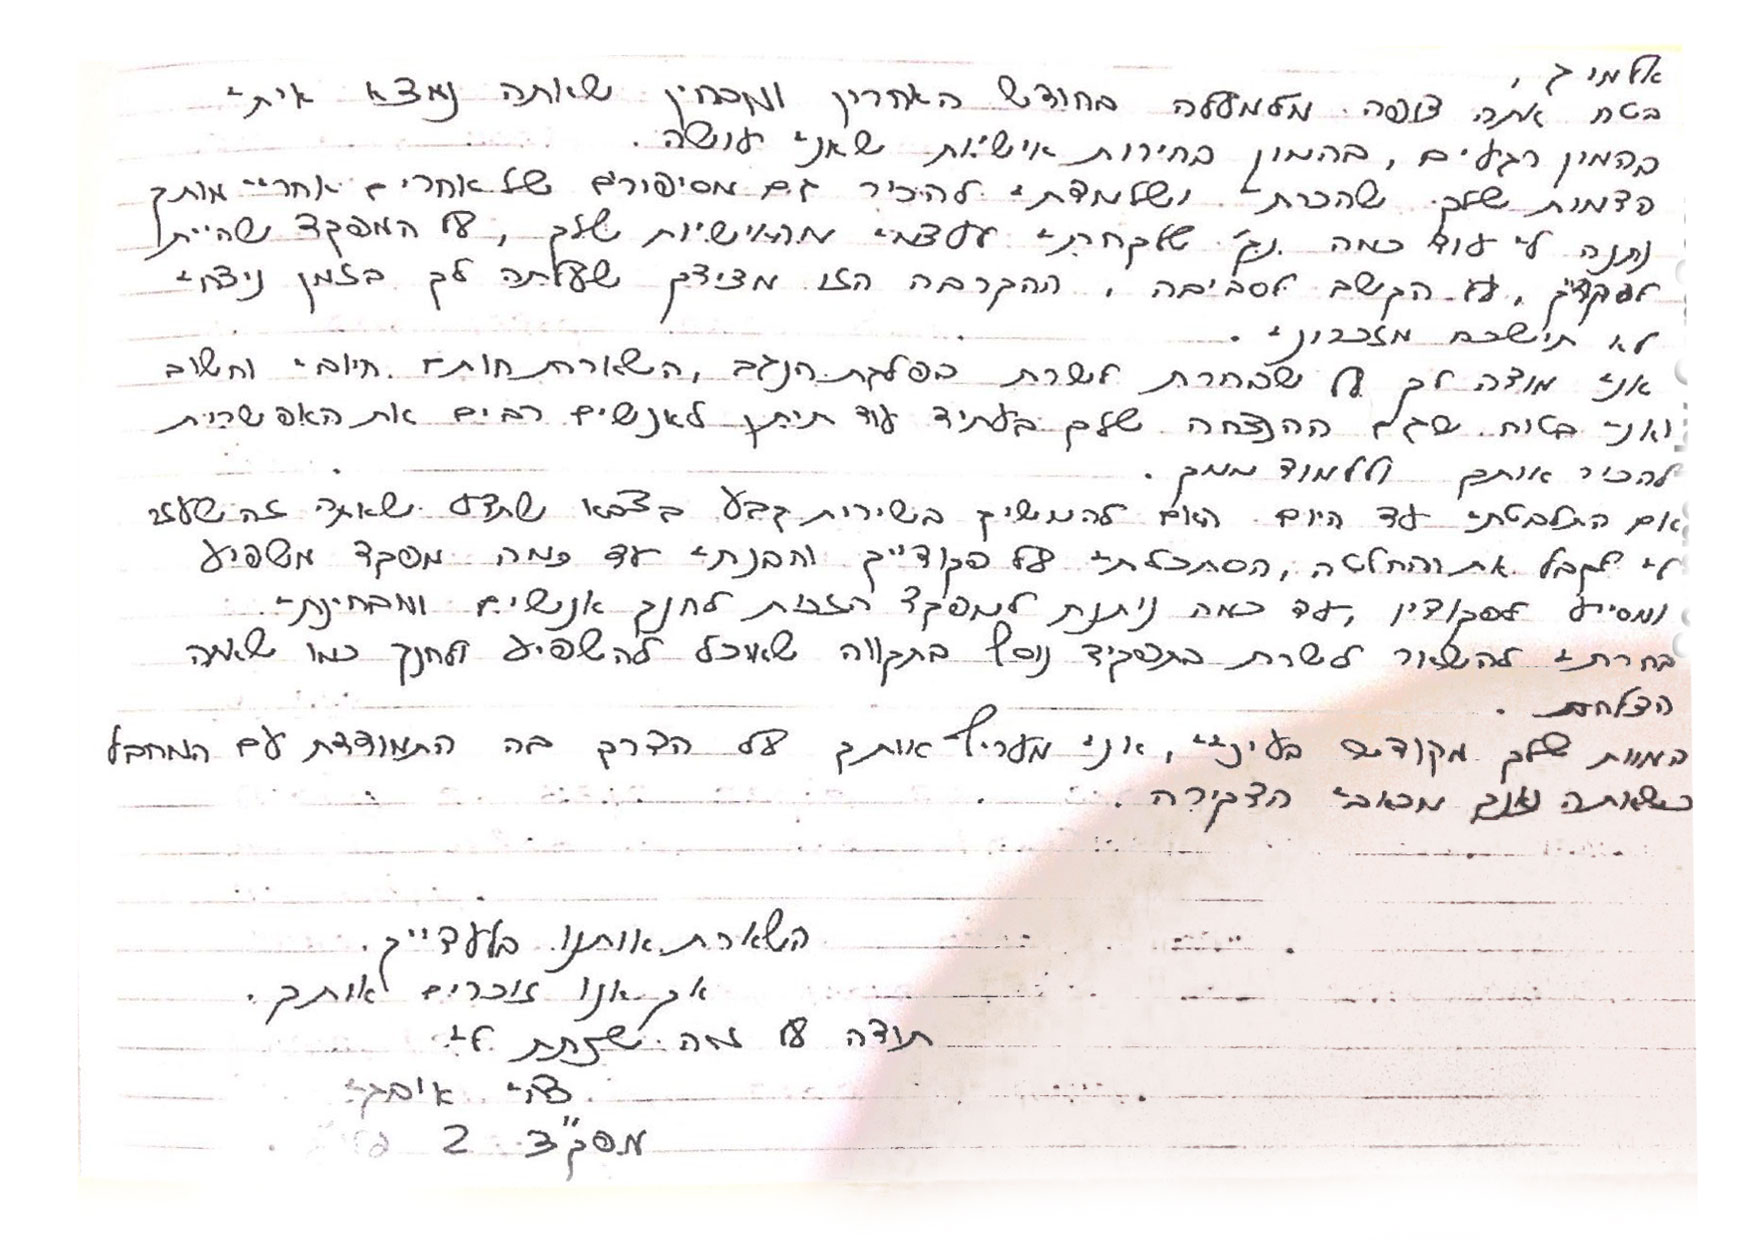 אלמוג,
בטח אתה צופה מלמעלה בחודש האחרון ומבחין שאתה נמצא איתי
בהמון רגעים, בהמון בחירות אישיות שאני עושה.
הדמות שלך שהכרתי ושלמדתי להכיר גם מסיפורים של אחרים אחרי מותך
נתנה לי עוד כמה שלקחתי לעצמי מהאישיות שלך, על המפקד שהיית
לפקודיך, על הקשב לסביבה, ההקרבה הזו מצידך שעלתה לך בזמן ניצחי
לא תישכח מזכרוני.
אני מודה לך על שבחרת לשרת בפלגת הנגב, השארת חותם חיובי וחשוב
ואני בטוח שגם ההנצחה שלך בעתיד עוד תיתן לאנשים רבים את האפשרות
להכיר אותך וללמוד ממך.
אם התלבטתי עד היום האם להמשיך בשירות קבע בצבא שתדע שאתה זה שעזר
לי לקבל את ההחלטה, הסתכלתי על פקודייך והבנתי עד כמה מפקד משפיע
ומסייע לפקודיו, עד כמה ניתנת למפקד הזכות לחנך אנשים ומבחינתי
בחרתי להשאר לשרת בתפקיד נוסף בתקווה שאוכל להשפיע ולחנך כמו שאתה
הצלחת.
המוות שלך מקודש בעיניי, אני מעריץ אותך על הדרך בה התמודדת עם המחבל
כשאתה נאנק מכאבי הדקירה.
השארת אותנו בלעדייך.
אך אנו זוכרים אותך.
תודה על מה שנתת לי
צחי
מפק"צ 2